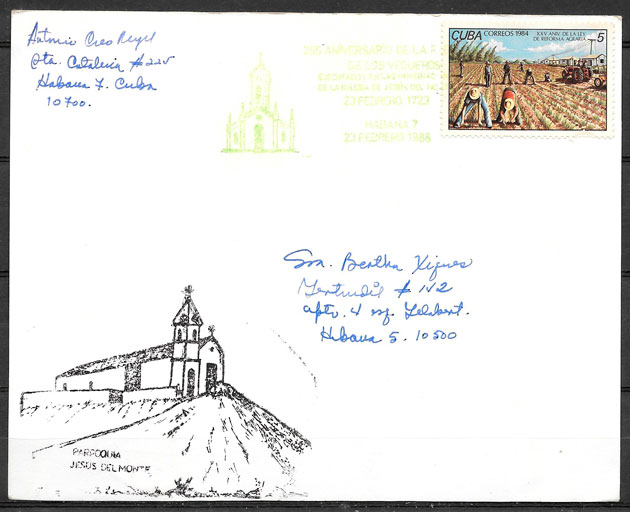 Antonio Creo Reyes
Sta. Catalina # 225
Habana 7. Cuba
10700.
265 ANIVERSARIO DE LA
DE LOS VEGUEROS
DE LA IGLESIA DE JESUS DEL
23 FEBRERO 1723
HABANA 7
23 FEBRERO 1988
CUBA CORREOS 1984 XXV ANIV. DE LA LEY
DE REFORMA AGRARIA 5
Sra. Bertha Xiques
Gertrudis # 142
apto. 4 esq.
Habana 5. 10500
PARROQUIA
JESUS DEL MONTE